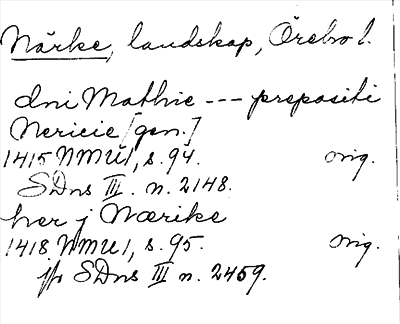 Närke, landskap, Örebro l.
dni Mathie --- prepositi
Nericie [gen.]
1415 NMU1, s. 94. orig.
SDns III. n. 2148.
her j Nærike
1418 NMU1, s. 95. orig.
jfr SDns III n. 2459.